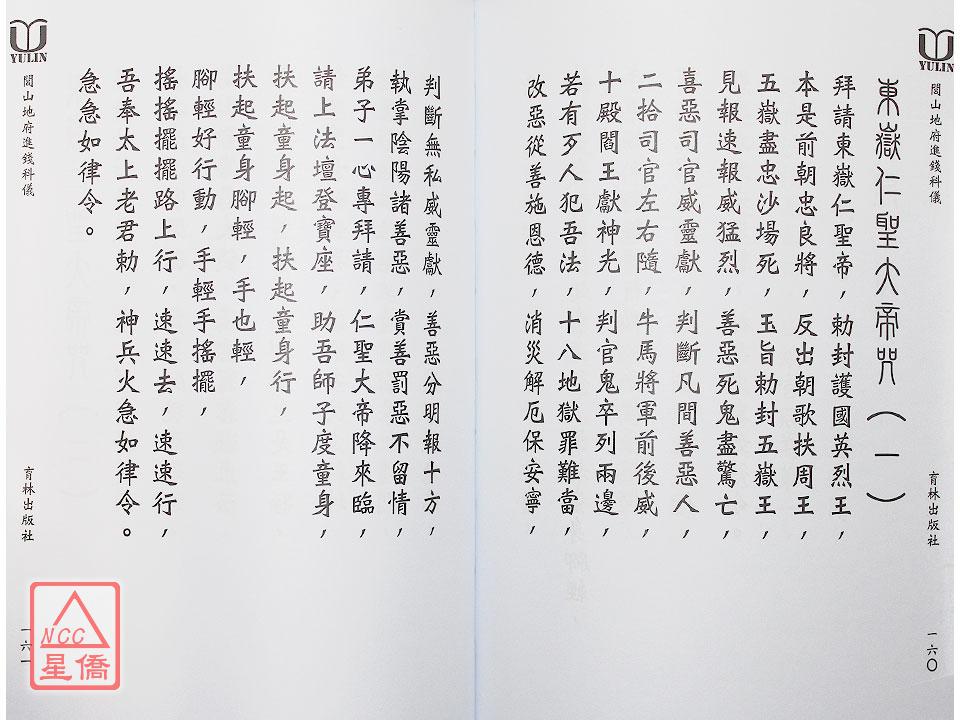 YULIN
閭山地府進錢科儀
育林出版社
一六〇
東嶽仁聖大帝咒（一）
拜請東嶽仁聖帝，勅封護國英烈王，
本是前朝忠良將，反出朝歌扶周王，
五嶽盡忠沙場死，玉旨勅封五嶽王，
見報速報威猛烈，善惡死鬼盡驚亡，
喜惡司官威靈獻，判斷凡間善惡人，
二拾司官左右隨，牛馬將軍前後威，
十殿閻王獻神光，判官鬼卒列兩邊，
若有歹人犯吾法，十八地獄罪難當，
改惡從善施恩德，消災解厄保安寧，
判斷無私威靈獻，善惡分明報十方，
執掌陰陽諸善惡，賞善罰惡不留情，
弟子一心專拜請，仁聖大帝降來臨，
請上法壇登寶座，助吾師子度童身，
扶起童身起，扶起童身行，
扶起童身腳輕，手也輕，
腳輕好行動，手輕手搖擺，
搖搖擺擺路上行，速速去，速速行，
吾奉太上老君勅，神兵火急如律令。
急急如律令。
YULIN
閭山地府進錢科儀
育林出版社
一六一
NCC
星僑